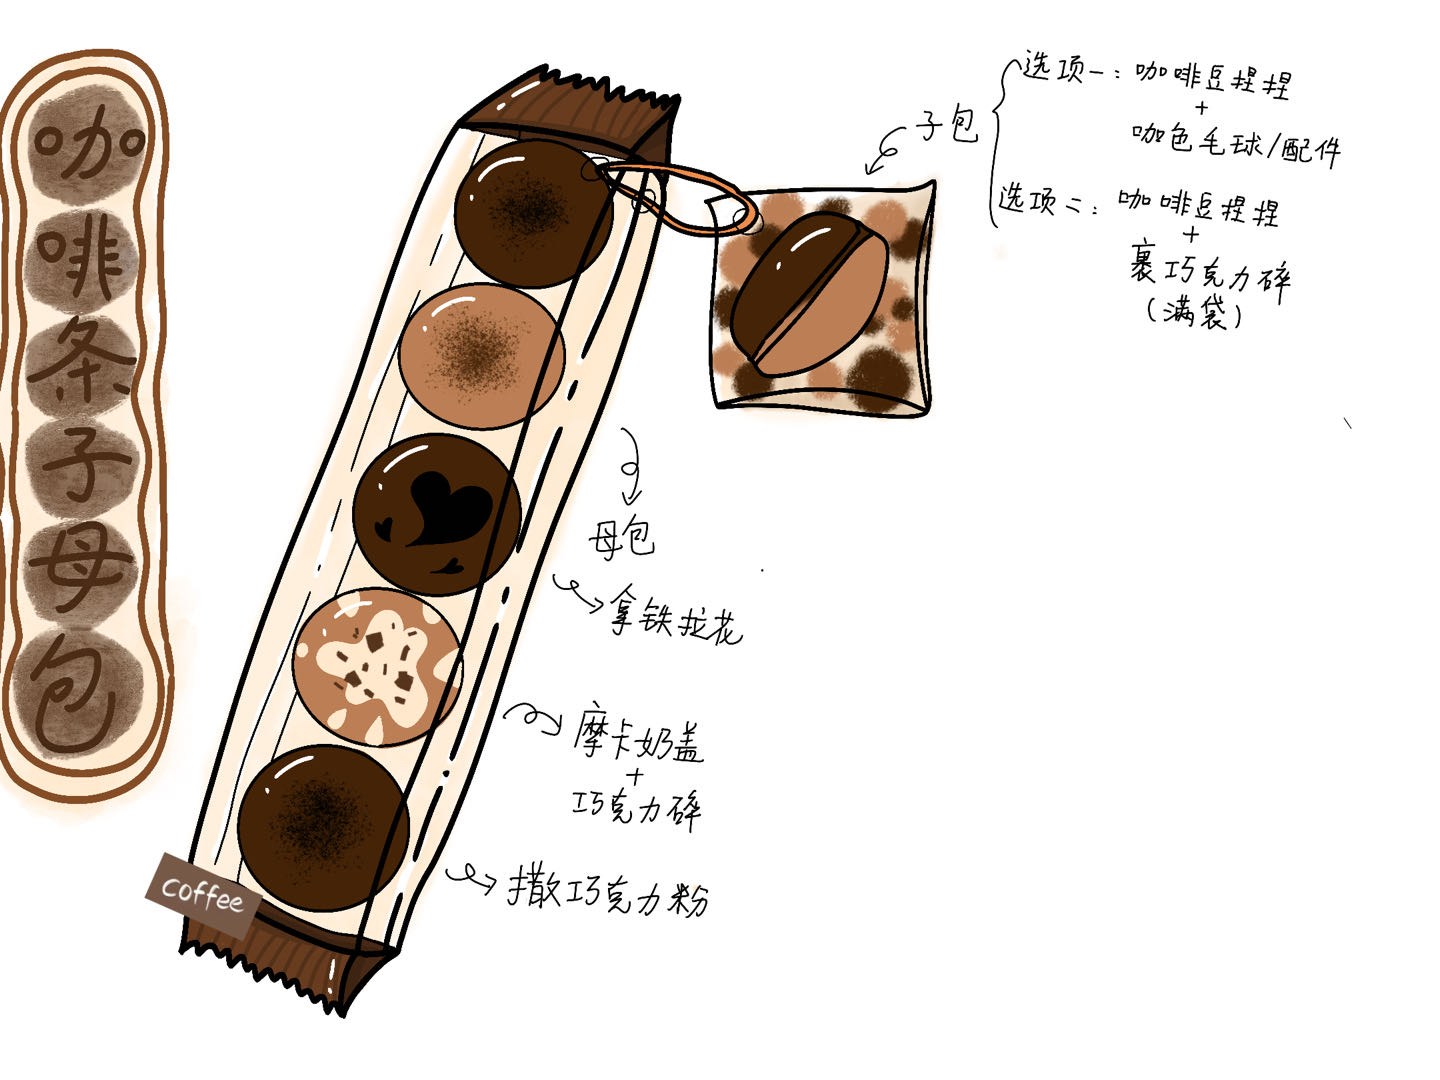 咖啡条子母包
子包
选项一：咖啡豆捏捏
+
咖色毛球/配件
选项二：咖啡豆捏捏
+
裹巧克力碎
(满袋)
母包
拿铁拉花
摩卡奶盖
+
巧克力碎
撒巧克力粉
coffee